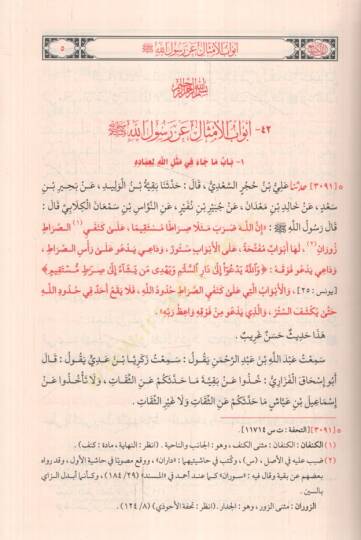 أبواب الأمثال عن رسول الله ﷺ
٥
٤٢- أبواب الأمثال عن رسول الله ﷺ
١- باب ما جاء في مثل الله لعباده
[٣٠٩١] حدثنا علي بن حجر السعدي، قال: حدثنا بقية بن الوليد، عن بحير بن
سعد، عن خالد بن معدان، عن جبير بن نفير، عن النواس بن سمعان الكلابي قال:
قال رسول الله ﷺ: «إن الله ضرب مثلا صراطا مستقيما، على كنفي (١) الصراط
زوران (٢)، لهما أبواب مفتحة، على الأبواب ستور، وداعي يدعو على رأس الصراط،
وداعي يدعو فوقه: ﴿والله يدعوا إلى دار السلم ويهدى من يشآء إلى صرط مستقيم﴾
[يونس: ٢٥]، والأبواب التي على كنفي الصراط حدود الله، فلا يقع أحد في حدود الله
حتى يكشف الستر، والذي يدعو من فوقه واعظ ربه».
هذا حديث حسن غريب.
سمعت عبد الله بن عبد الرحمن يقول: سمعت زكريا بن عدي يقول: قال
أبو إسحاق الفزاري: خذوا عن بقية ما حدثكم عن الثقات، ولا تأخذوا عن
إسماعيل بن عياش ما حدثكم عن الثقات ولا غير الثقات.
[٣٠٩١] [التحفة: ت س ١١٧١٤].
(١) الكنفان: مثنى الكنف، وهو: الجانب والناحية. (انظر: النهاية، مادة: كنف).
(٢) ضبب عليه في الأصل، (س)، وكتب في حاشيتيهما: «داران»، ووقع مصوبا في حاشية الأول، وقد رواه
بعضهم عن بقية وقال فيه: «سوران» كما عند أحمد في «المسند» (٢٩/ ١٨٤)، وكأنما أبدل الزاي
بالسين.
الزوران: مثنى الزور، وهو: الجدار. (انظر: تحفة الأحوذي) (٨/ ١٢٤).